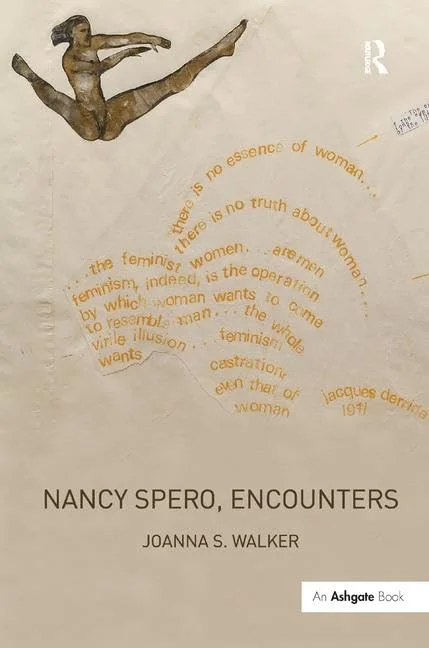 ROUTLEDGE
there is no essence of woman...
there is no truth about woman....
...the feminist women... are men
feminism, indeed, is the operation
by which woman wants to come
to resemble man... the whole
virile illusion... feminism
wants castration,
even that of
woman
jacques derrida
NANCY SPERO, ENCOUNTERS
JOANNA S. WALKER
An Ashgate Book